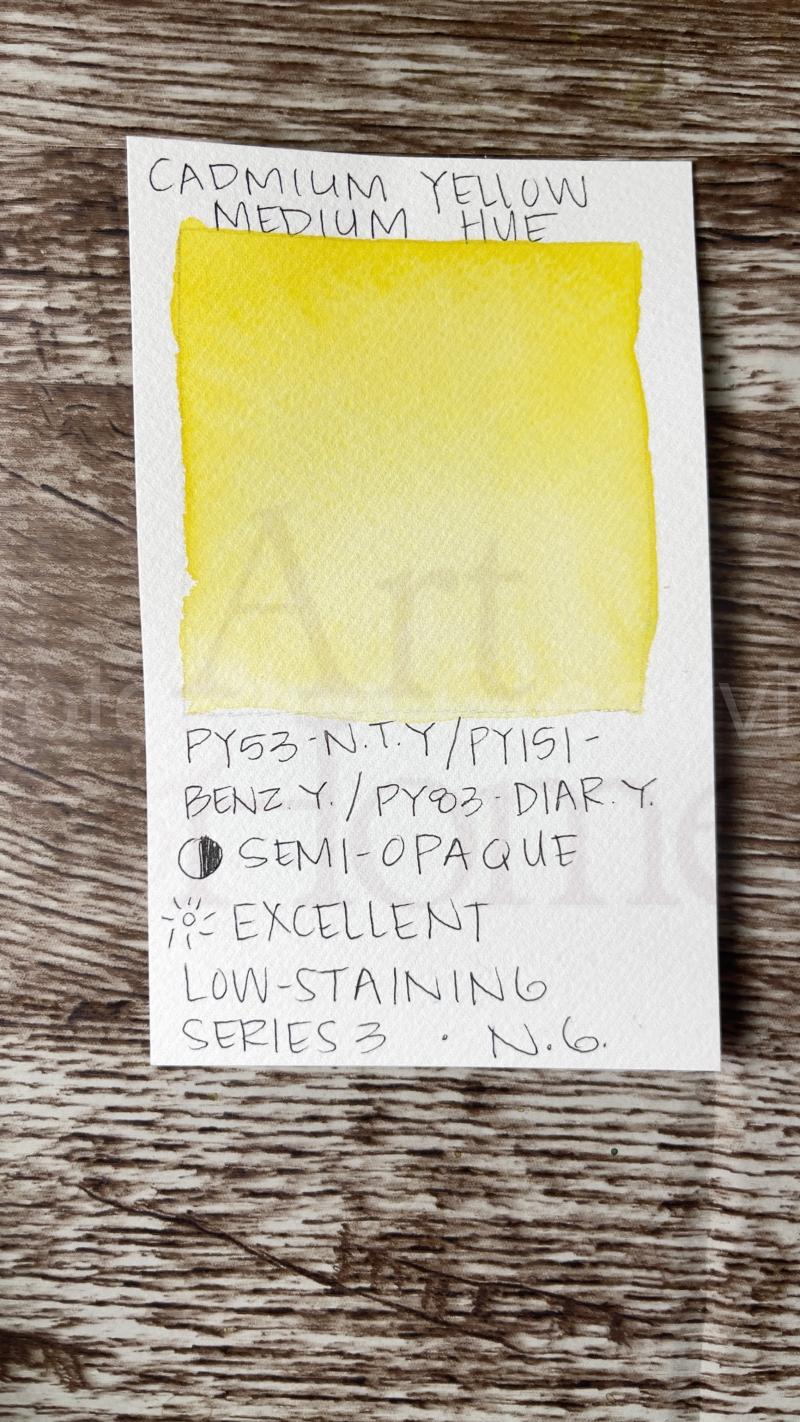 CADMIUM YELLOW
MEDIUM HUE
Art
PY53-N.T.Y/PY151-
BENZ.Y./PY83-DIAR.Y.
Home
SEMI-OPAQUE
EXCELLENT
LOW-STAINING
SERIES 3 . N.G.